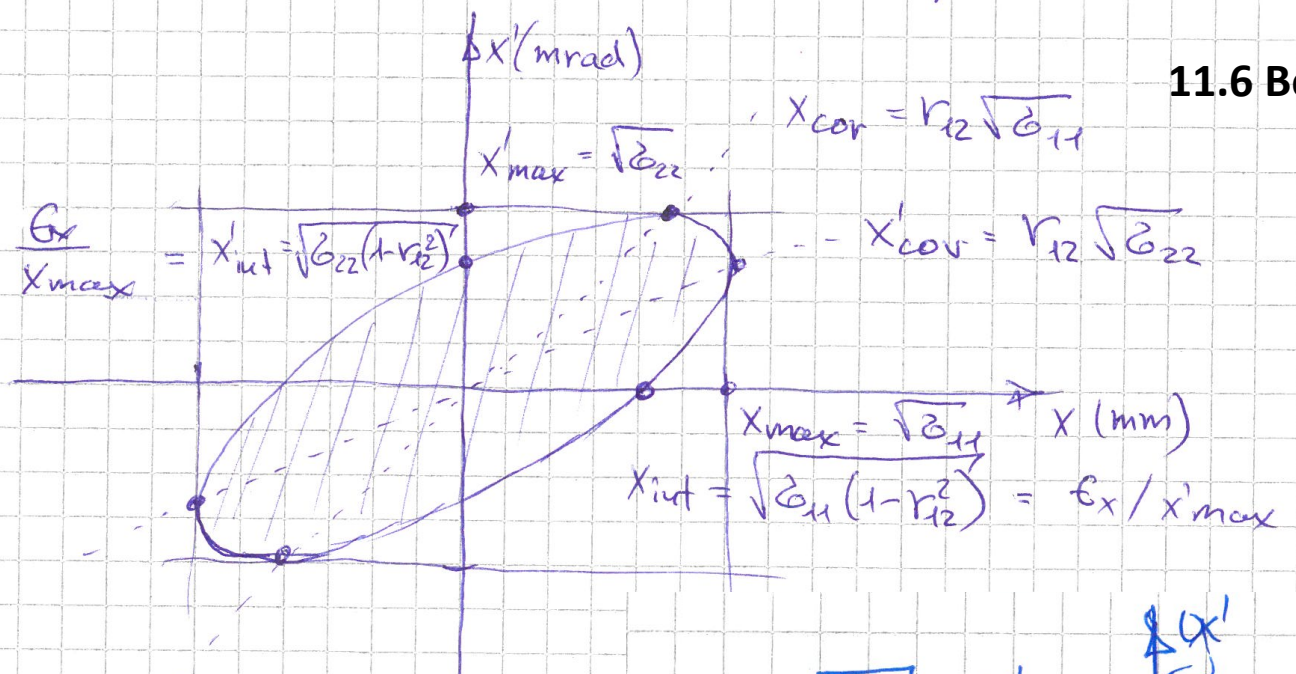 x'(mrad)
11.6 Be
x_cor = r_12 √σ_11
x'_max = √σ_22
ε_x / x_max = x'_int = √σ_22(1-r_12^2)
x'_cor = r_12 √σ_22
x_max = √σ_11 x (mm)
x_int = √σ_11(1-r_12^2) = ε_x / x'_max
x'